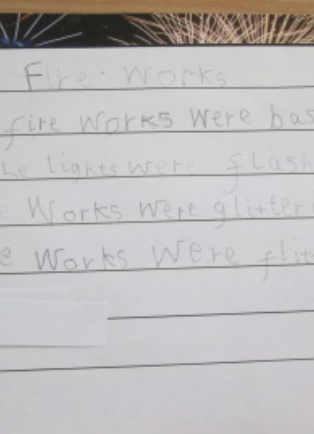 Fire. Works
fire works were bas
he lights were flash
e works were glitter
e works were flit